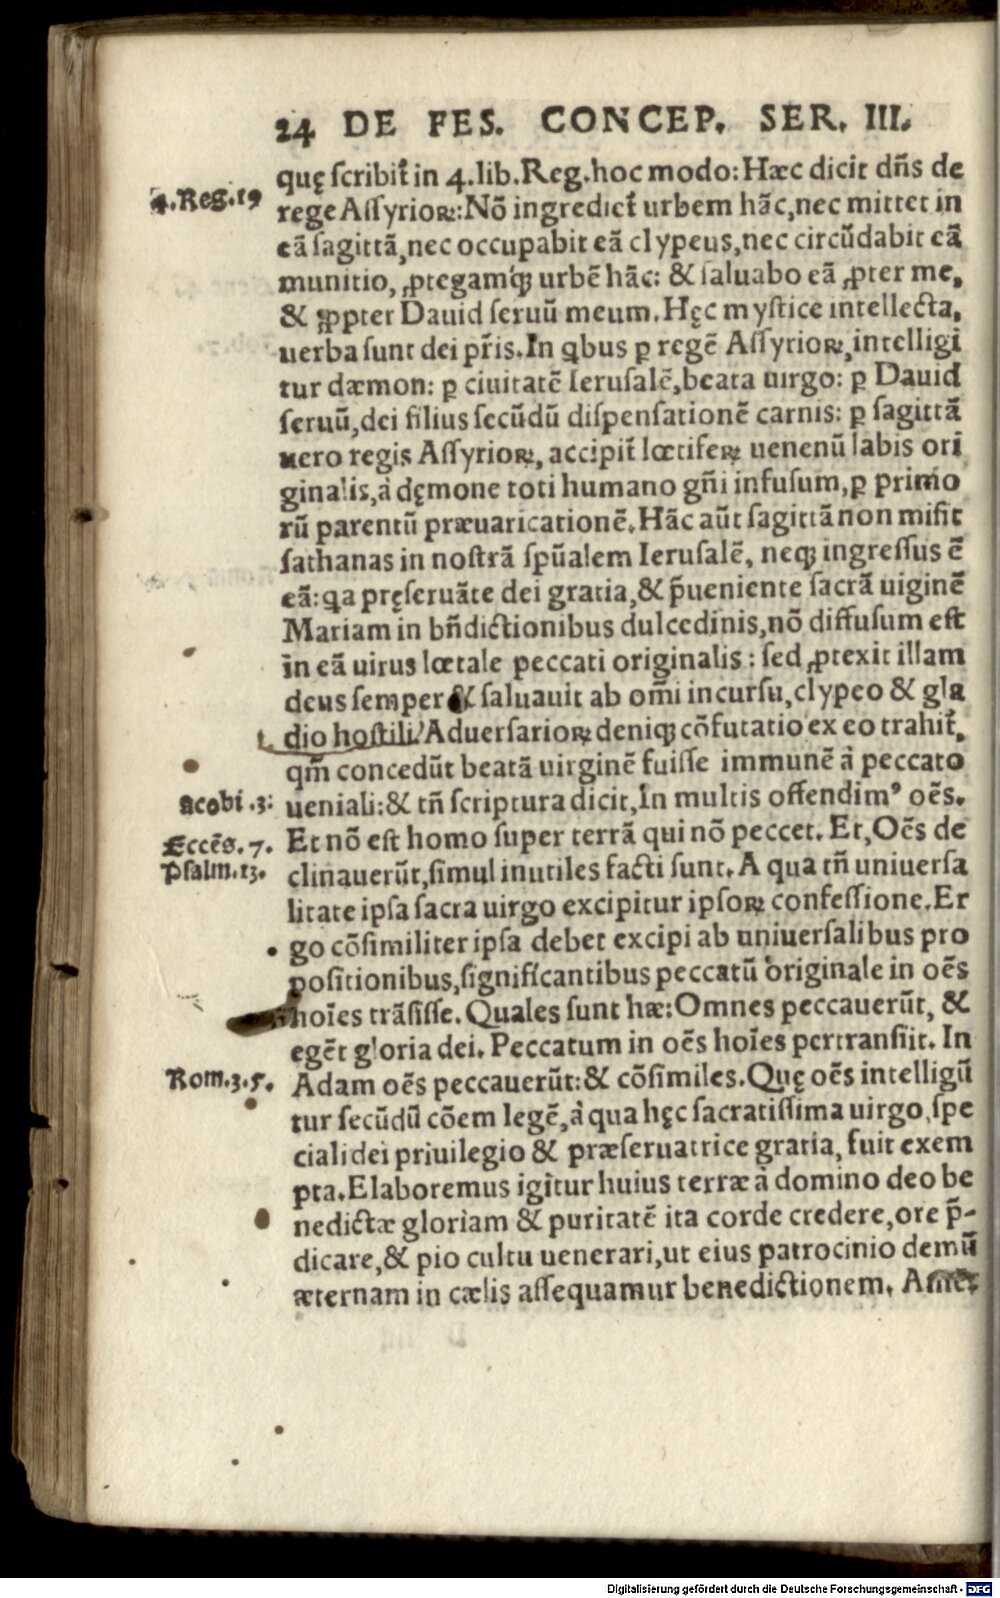 24 DE FES. CONCEP. SER. III.
quę scribit᷑ in 4. lib. Reg. hoc modo: Hæc dicit dñs de
4. Reg. 19
rege Assyrioꝝ: Nō ingrediet᷑ urbem hāc, nec mittet in
eā sagittā, nec occupabit eā clypeus, nec circūdabit eā
munitio, ꝓtegamq́ꝫ urbē hāc: & saluabo eā ꝓpter me,
& ꝓpter Dauid seruū meum. Hęc mystice intellecta,
uerba sunt dei pr̃is. In qbus ꝑ regē Assyrioꝝ, intelligi
tur dæmon: ꝑ ciuitatē Ierusalē, beata uirgo: ꝑ Dauid
seruū, dei filius secūdū dispensationē carnis: ꝑ sagittā
uero regis Assyrioꝝ, accipit᷑ lœtifeꝝ uenenū labis ori
ginalis, à dęmone toti humano gñi infusum, ꝑ primo
rū parentū præuaricationē. Hāc aũt sagittā non misit
sathanas in nostrā spũalem Ierusalē, neqꝫ ingressus ē
eā: qa pręseruāte dei gratia, & p̃ueniente sacrā uiginē
Mariam in bñdictionibus dulcedinis, nō diffusum est
in eā uirus lœtale peccati originalis: sed ꝓtexit illam
deus semper & saluauit ab om̃i incursu, clypeo & gla
dio hostili. Aduersarioꝝ deniqꝫ cōfutatio ex eo trahit᷑,
qm̃ concedūt beatā uirginē fuisse immunē à peccato
acobi .3:
ueniali: & tñ scriptura dicit, In multis offendimꝰ oēs.
Eccẽs. 7.
Et nō est homo super terrā qui nō peccet. Et, Oēs de
Psalm. 13.
clinauerūt, simul inutiles facti sunt. A qua tñ uniuersa
litate ipsa sacra uirgo excipitur ipsoꝝ confessione. Er
go cōsimiliter ipsa debet excipi ab uniuersalibus pro
positionibus, significantibus peccatū originale in oēs
hoīes trāsisse. Quales sunt hæ: Omnes peccauerūt, &
egēt gloria dei. Peccatum in oēs hoīes pertransiit. In
Rom. 3. 5.
Adam oēs peccauerūt: & cōsimiles. Quę oēs intelligū
tur secūdū cōem legē, à qua hęc sacratissima uirgo, spe
ciali dei priuilegio & præseruatrice gratia, fuit exem
pta. Elaboremus igitur huius terræ à domino deo be
nedictæ gloriam & puritatē ita corde credere, ore p̃-
dicare, & pio cultu uenerari, ut eius patrocinio demū
æternam in cælis assequamur benedictionem. Amē.
Digitalisierung gefördert durch die Deutsche Forschungsgemeinschaft - DFG